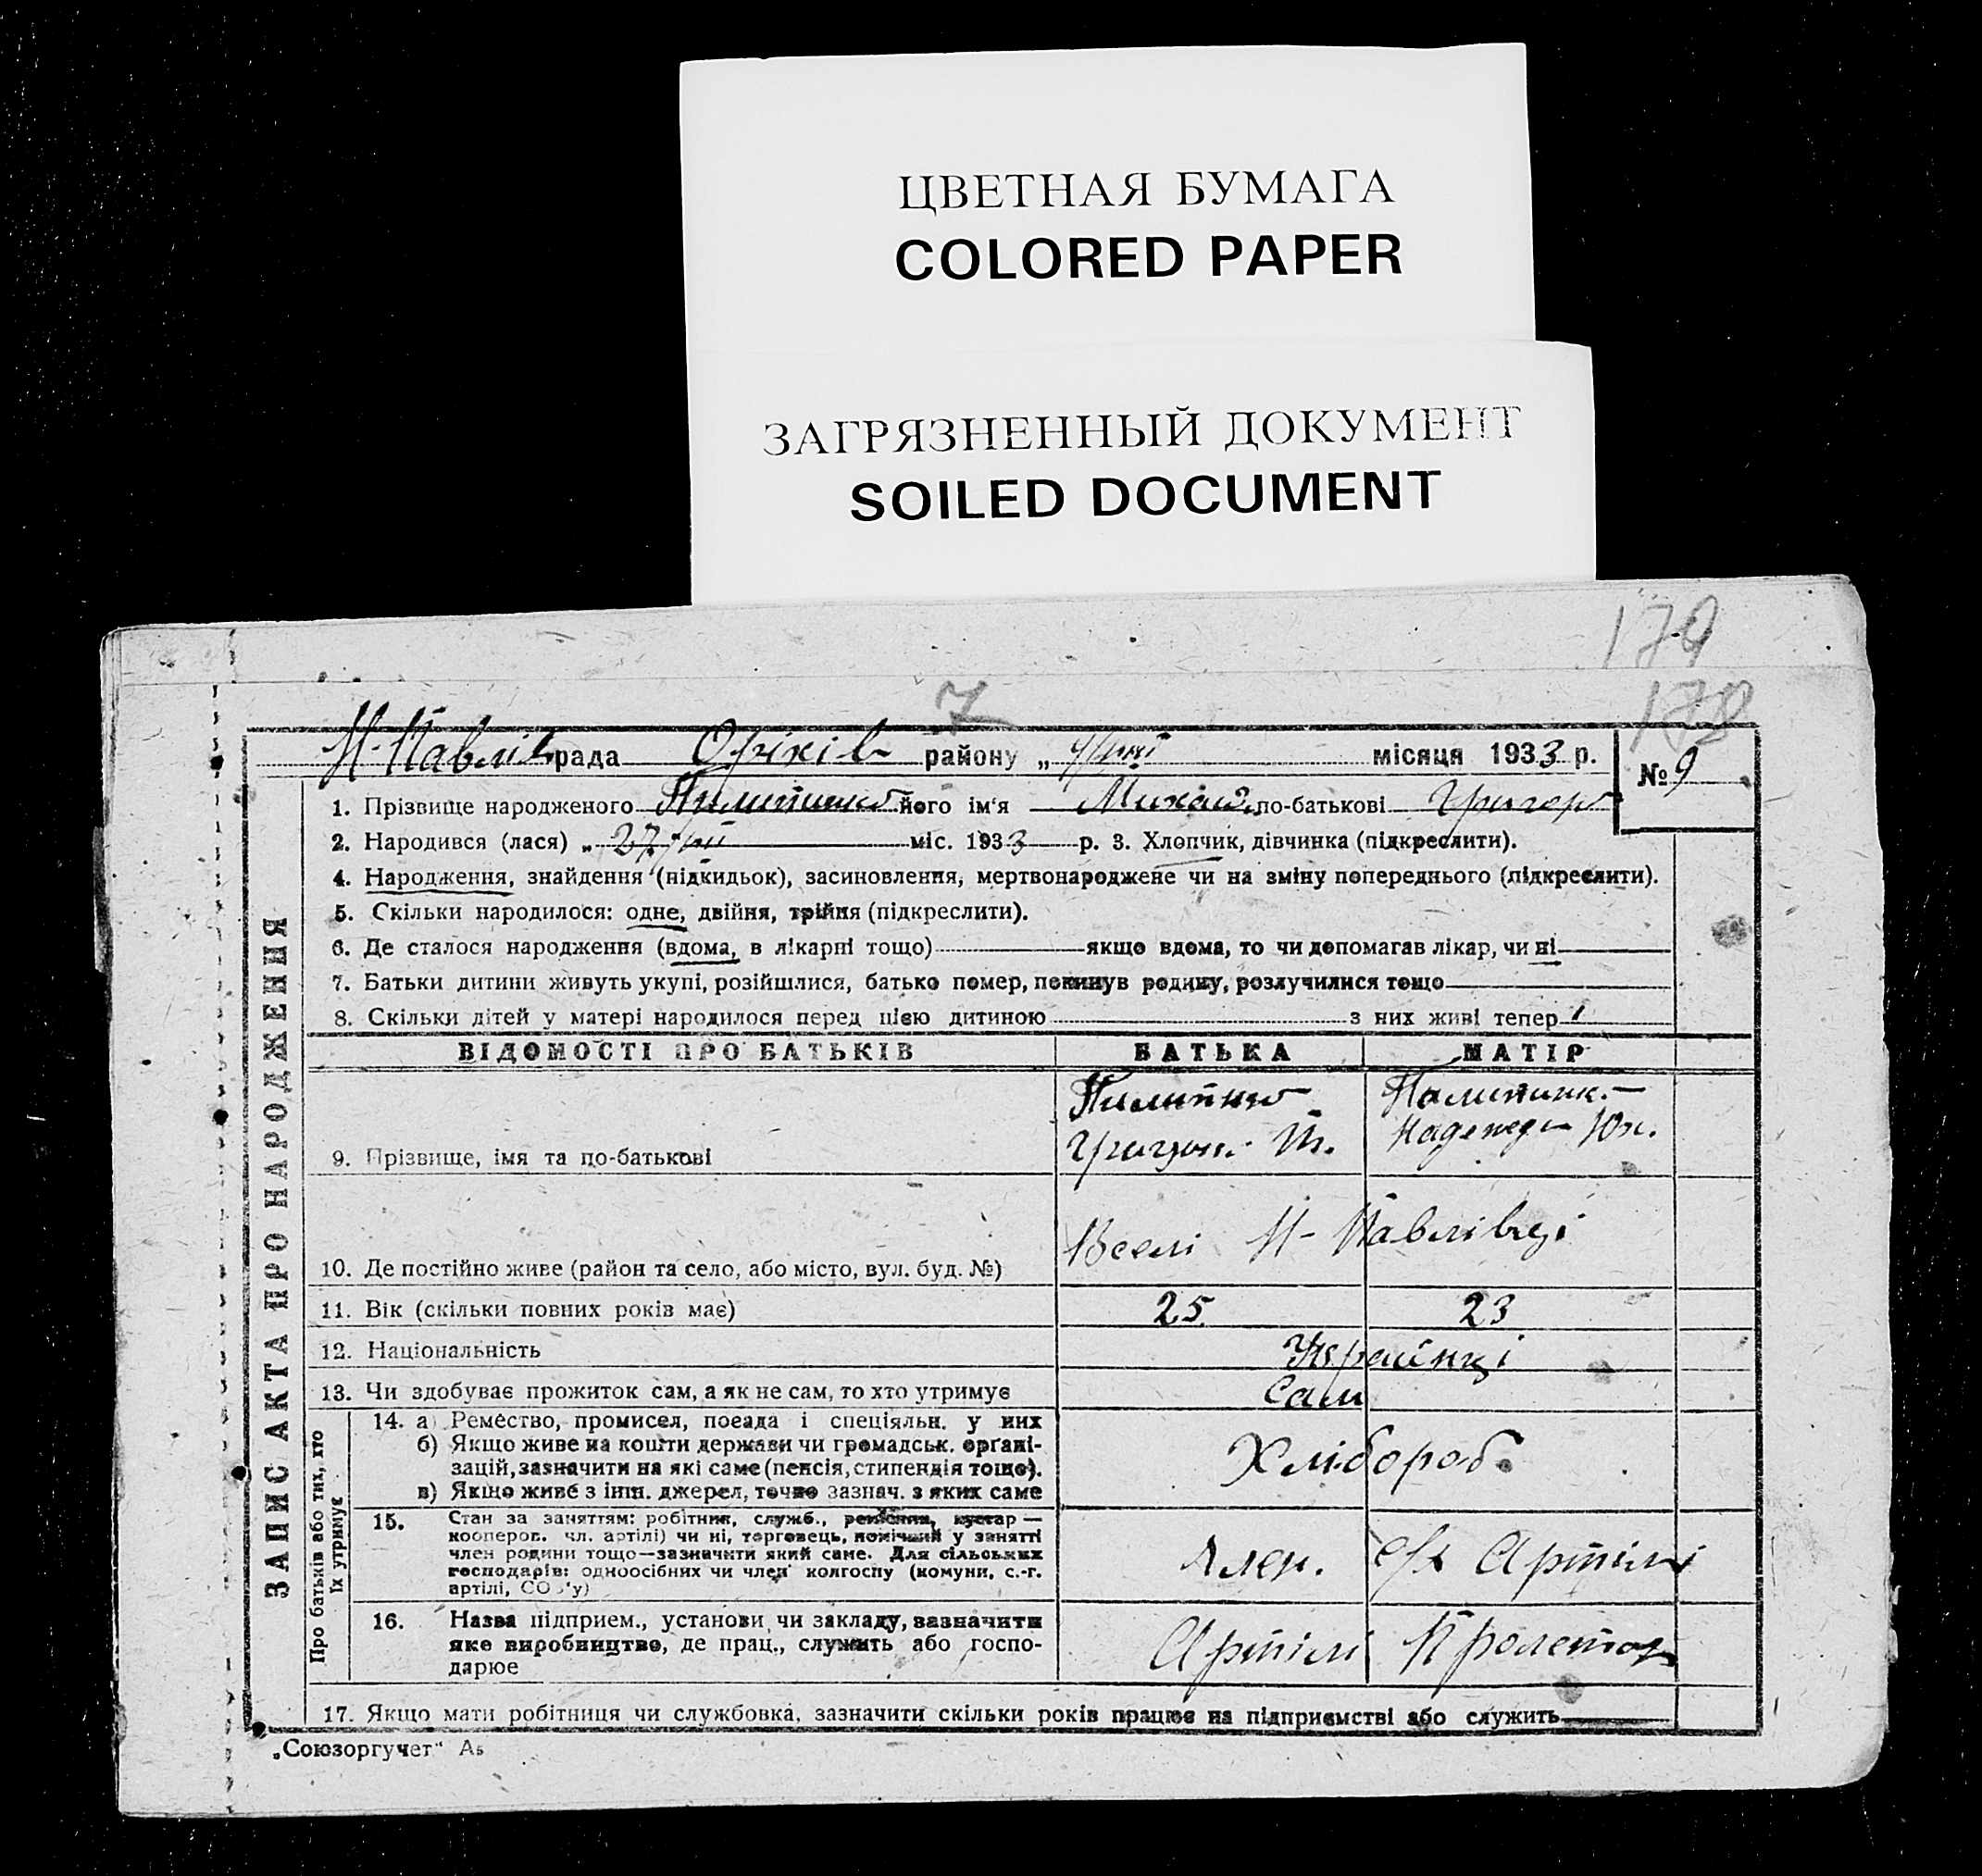 ЦВЕТНАЯ БУМАГА
COLORED PAPER
ЗАГРЯЗНЕННЫЙ ДОКУМЕНТ
SOILED DOCUMENT
179
178
7
Н-Павлів рада Оріхів району „ місяця 1933 р.
№ 9
1. Прізвище народженого його ім'я Михайл по-батькові Григор
2. Народився (лася) „ 27 міс. 1933 р. 3. Хлопчик, дівчинка (підкреслити).
4. Народження, знайдення (підкидьок), засиновлення, мертвонароджене чи на зміну попереднього (підкреслити).
5. Скільки народилося: одне, двійня, трійня (підкреслити).
6. Де сталося народження (вдома, в лікарні тощо) якщо вдома, то чи допомагав лікар, чи ні
7. Батьки дитини живуть укупі, розійшлися, батько помер, покинув родину, розлучилися тощо
8. Скільки дітей у матері народилося перед цією дитиною з них живі тепер 1
ЗАПИС АКТА ПРО НАРОДЖЕННЯ
ВІДОМОСТІ ПРО БАТЬКІВ БАТЬКА МАТІР
9. Прізвище, імя та по-батькові
Надежда Юх.
10. Де постійно живе (район та село, або місто, вул. буд. №)
Вселі Н-Павлівці
11. Вік (скільки повних років має) 25 23
12. Національність Українці
13. Чи здобуває прожиток сам, а як не сам, то хто утримує Сам
Про батьків або тих, хто
їх утримує
14. а) Ремество, промисел, посада і спеціяльн. у них
б) Якщо живе на кошти держави чи громадськ. організацій, зазначити на які саме (пенсія, стипендія тощо).
в) Якщо живе з інш. джерел, точно зазнач. з яких саме
Хлібороб.
15. Стан за заняттям: робітник, служб., ремісник, кустар—
кооперов. чл. артілі) чи ні, торговець, помічний у занятті
член родини тощо—зазначити який саме. Для сільських
господарів: одноосібних чи член колгоспу (комуни, с.-г.
артілі, СО 'у)
Член. с/г Артілі
16. Назва підприєм., установи чи закладу, зазначити
яке виробництво, де прац., служить або господарює
Артілі Пролетар
17. Якщо мати робітниця чи службовка, зазначити скільки років працює на підприємстві або служить
„Союзоргучет"